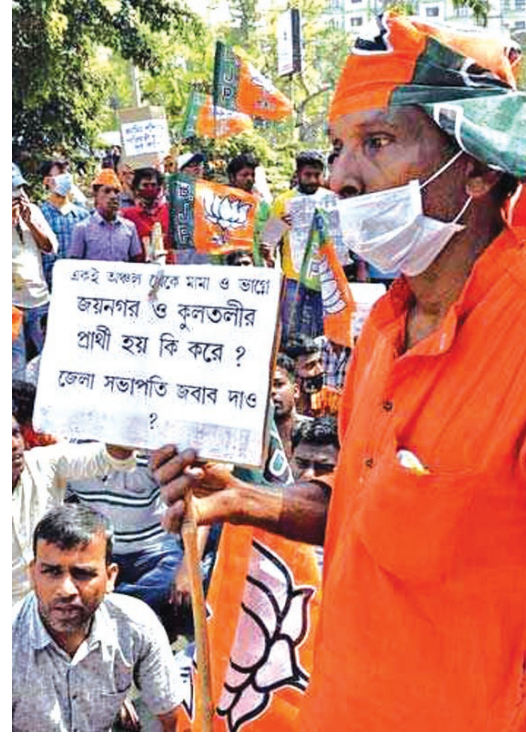 একই অঞ্চল থেকে মামা ও ভাগ্নে
জয়নগর ও কুলতলীর
প্রার্থী হয় কি করে ?
জেলা সভাপতি জবাব দাও
?